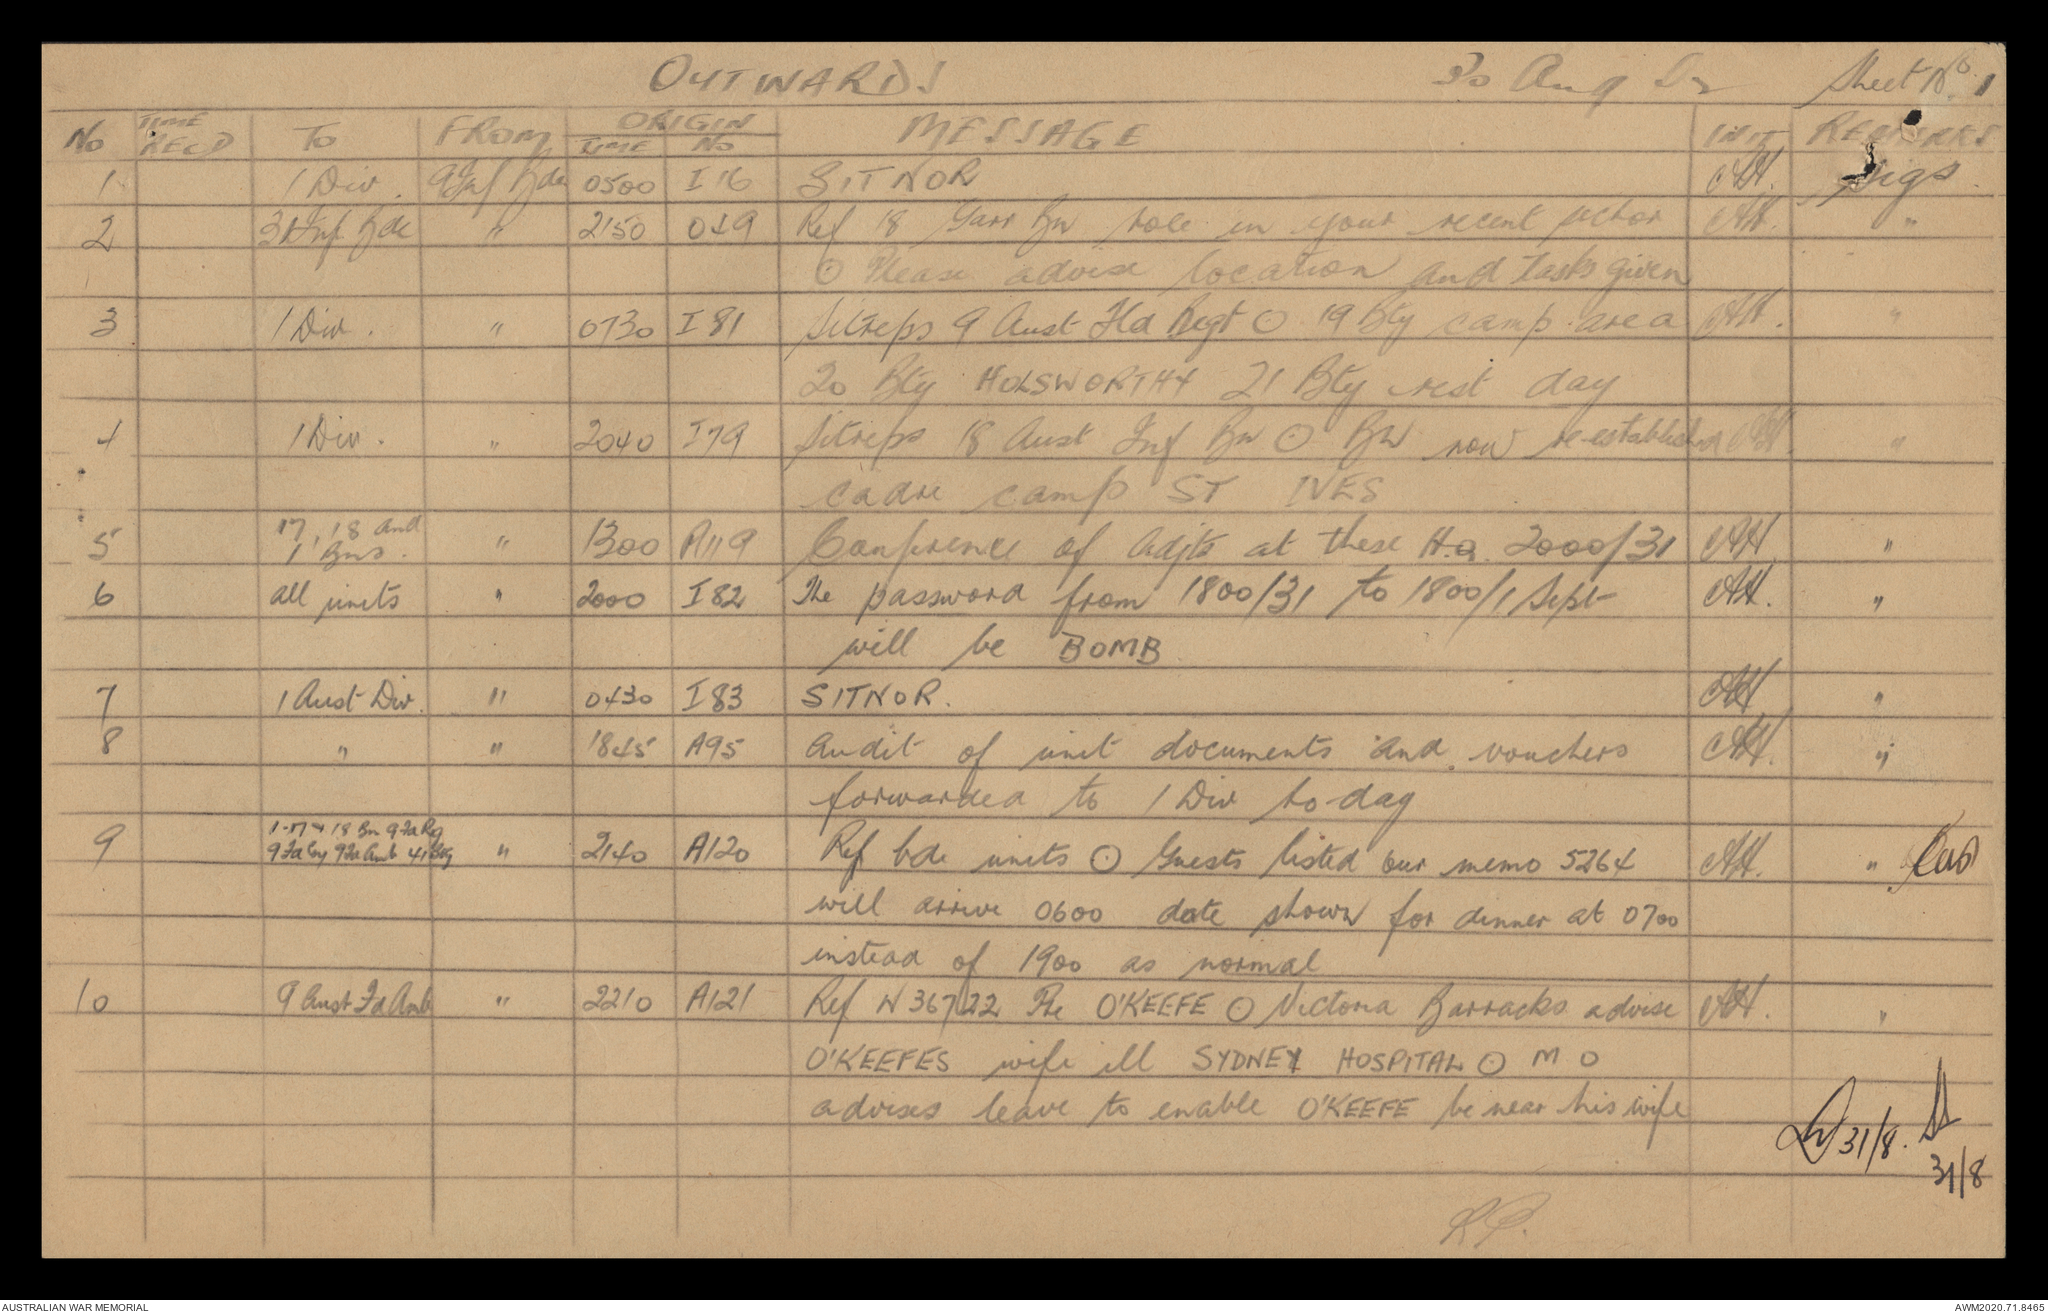 OUTWARDS 30 Aug 42 Sheet No. 1
No TIME RECD TO FROM ORIGIN TIME No MESSAGE INT REMARKS
1 1 Div. 9 Inf Bde 0500 I 16 SITNOR AH. Sigs
2 32 Inf Bde " 2150 049 Ref 18 Garr Bn role in your recent sector AH. "
⊙ Please advise location and tasks given
3 1 Div. " 0730 I 81 Sitreps 9 Aust Fld Regt ⊙ 19 Bty camp area AH. "
20 Bty HOLSWORTHY 21 Bty rest day
4 1 Div. " 2040 I79 Sitreps 18 Aust Inf Bn ⊙ Bn now re-established AH. "
cadre camp ST IVES
5 17, 18 and 1 Bns. " 1300 A119 Conference of Adjts at these H.Q. 2000/31 AH "
6 all units " 2000 I 82 The password from 1800/31 to 1800/1 Sept AH. "
will be BOMB
7 1 Aust Div. " 0430 I 83 SITNOR. AH "
8 " " 1845 A95 Audit of unit documents and vouchers AH. "
forwarded to 1 Div to-day
9 1-17 & 18 Bn 9 Fd Reg
9 Fd Coy 9 Fd Amb 41 Bty " 2140 A120 Ref bde units ⊙ Guests listed our memo 5264 AH. "
will arrive 0600 date shown for dinner at 0700
instead of 1900 as normal
10 9 Aust Fd Amb " 2210 A121 Ref N 36722 Pte O'KEEFE ⊙ Victoria Barracks advise AH. "
O'KEEFES wife ill SYDNEY HOSPITAL ⊙ M O
advises leave to enable O'KEEFE be near his wife
31/8.
31/8
AUSTRALIAN WAR MEMORIAL AWM2020.71.8465